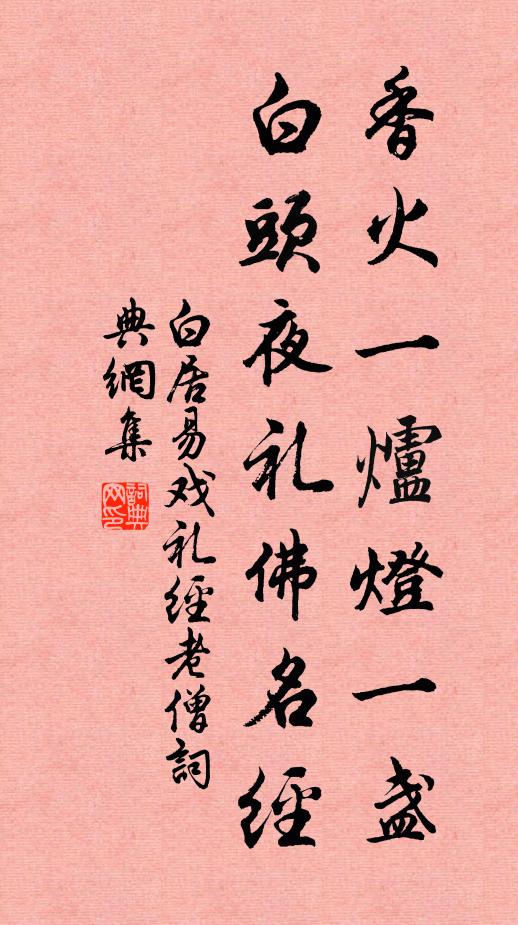 香火一爐燈一盏
白頭夜礼佛名經
白居易戏礼經老僧詞
典網集
詞典
网印